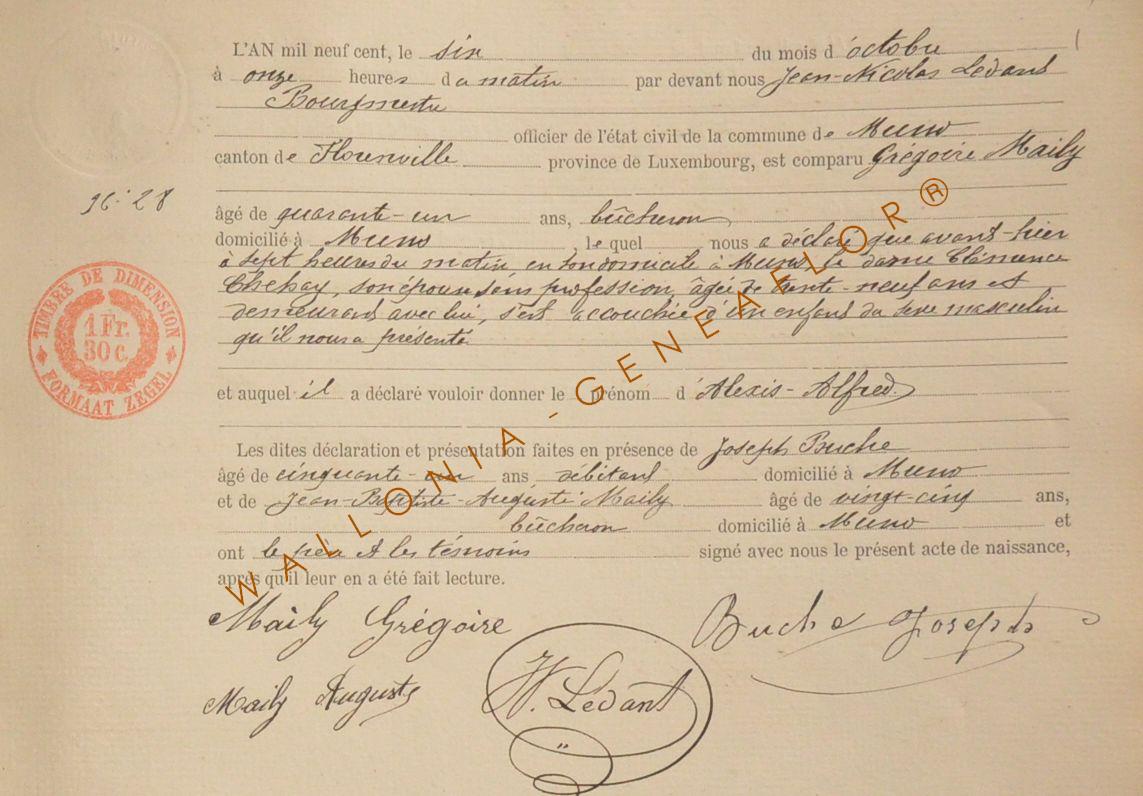 L'AN mil neuf cent, le six du mois d'octobre
à onze heures du matin par devant nous Jean-Nicolas Ledant
Bourgmestre
officier de l'état civil de la commune de Muno
canton de Florenville province de Luxembourg, est comparu Grégoire Maily
âgé de quarante-un ans, bûcheron,
domicilié à Muno, lequel nous a déclaré que avant-hier
à sept heures du matin, en son domicile à Muno, la dame Clémence
son épouse, sans profession, âgée de trente-neuf ans et
demeurant avec lui, s'est accouchée d'un enfant du sexe masculin
qu'il nous a présenté
et auquel il a déclaré vouloir donner le prénom d'Alexis-Alfred
Les dites déclaration et présentation faites en présence de Joseph Buche
âgé de cinquante-un ans débitant domicilié à Muno
et de Jean-Baptiste-Auguste Maily âgé de vingt-cinq ans,
bûcheron domicilié à Muno et
ont le père et les témoins signé avec nous le présent acte de naissance,
après qu'il leur en a été fait lecture.
Maily Grégoire Buche Joseph
Maily Auguste Ledant
96-28
TIMBRE DE DIMENSION
1 Fr.
30 c.
FORMAAT ZEGEL
WALLONIA-GENEAFLOR®